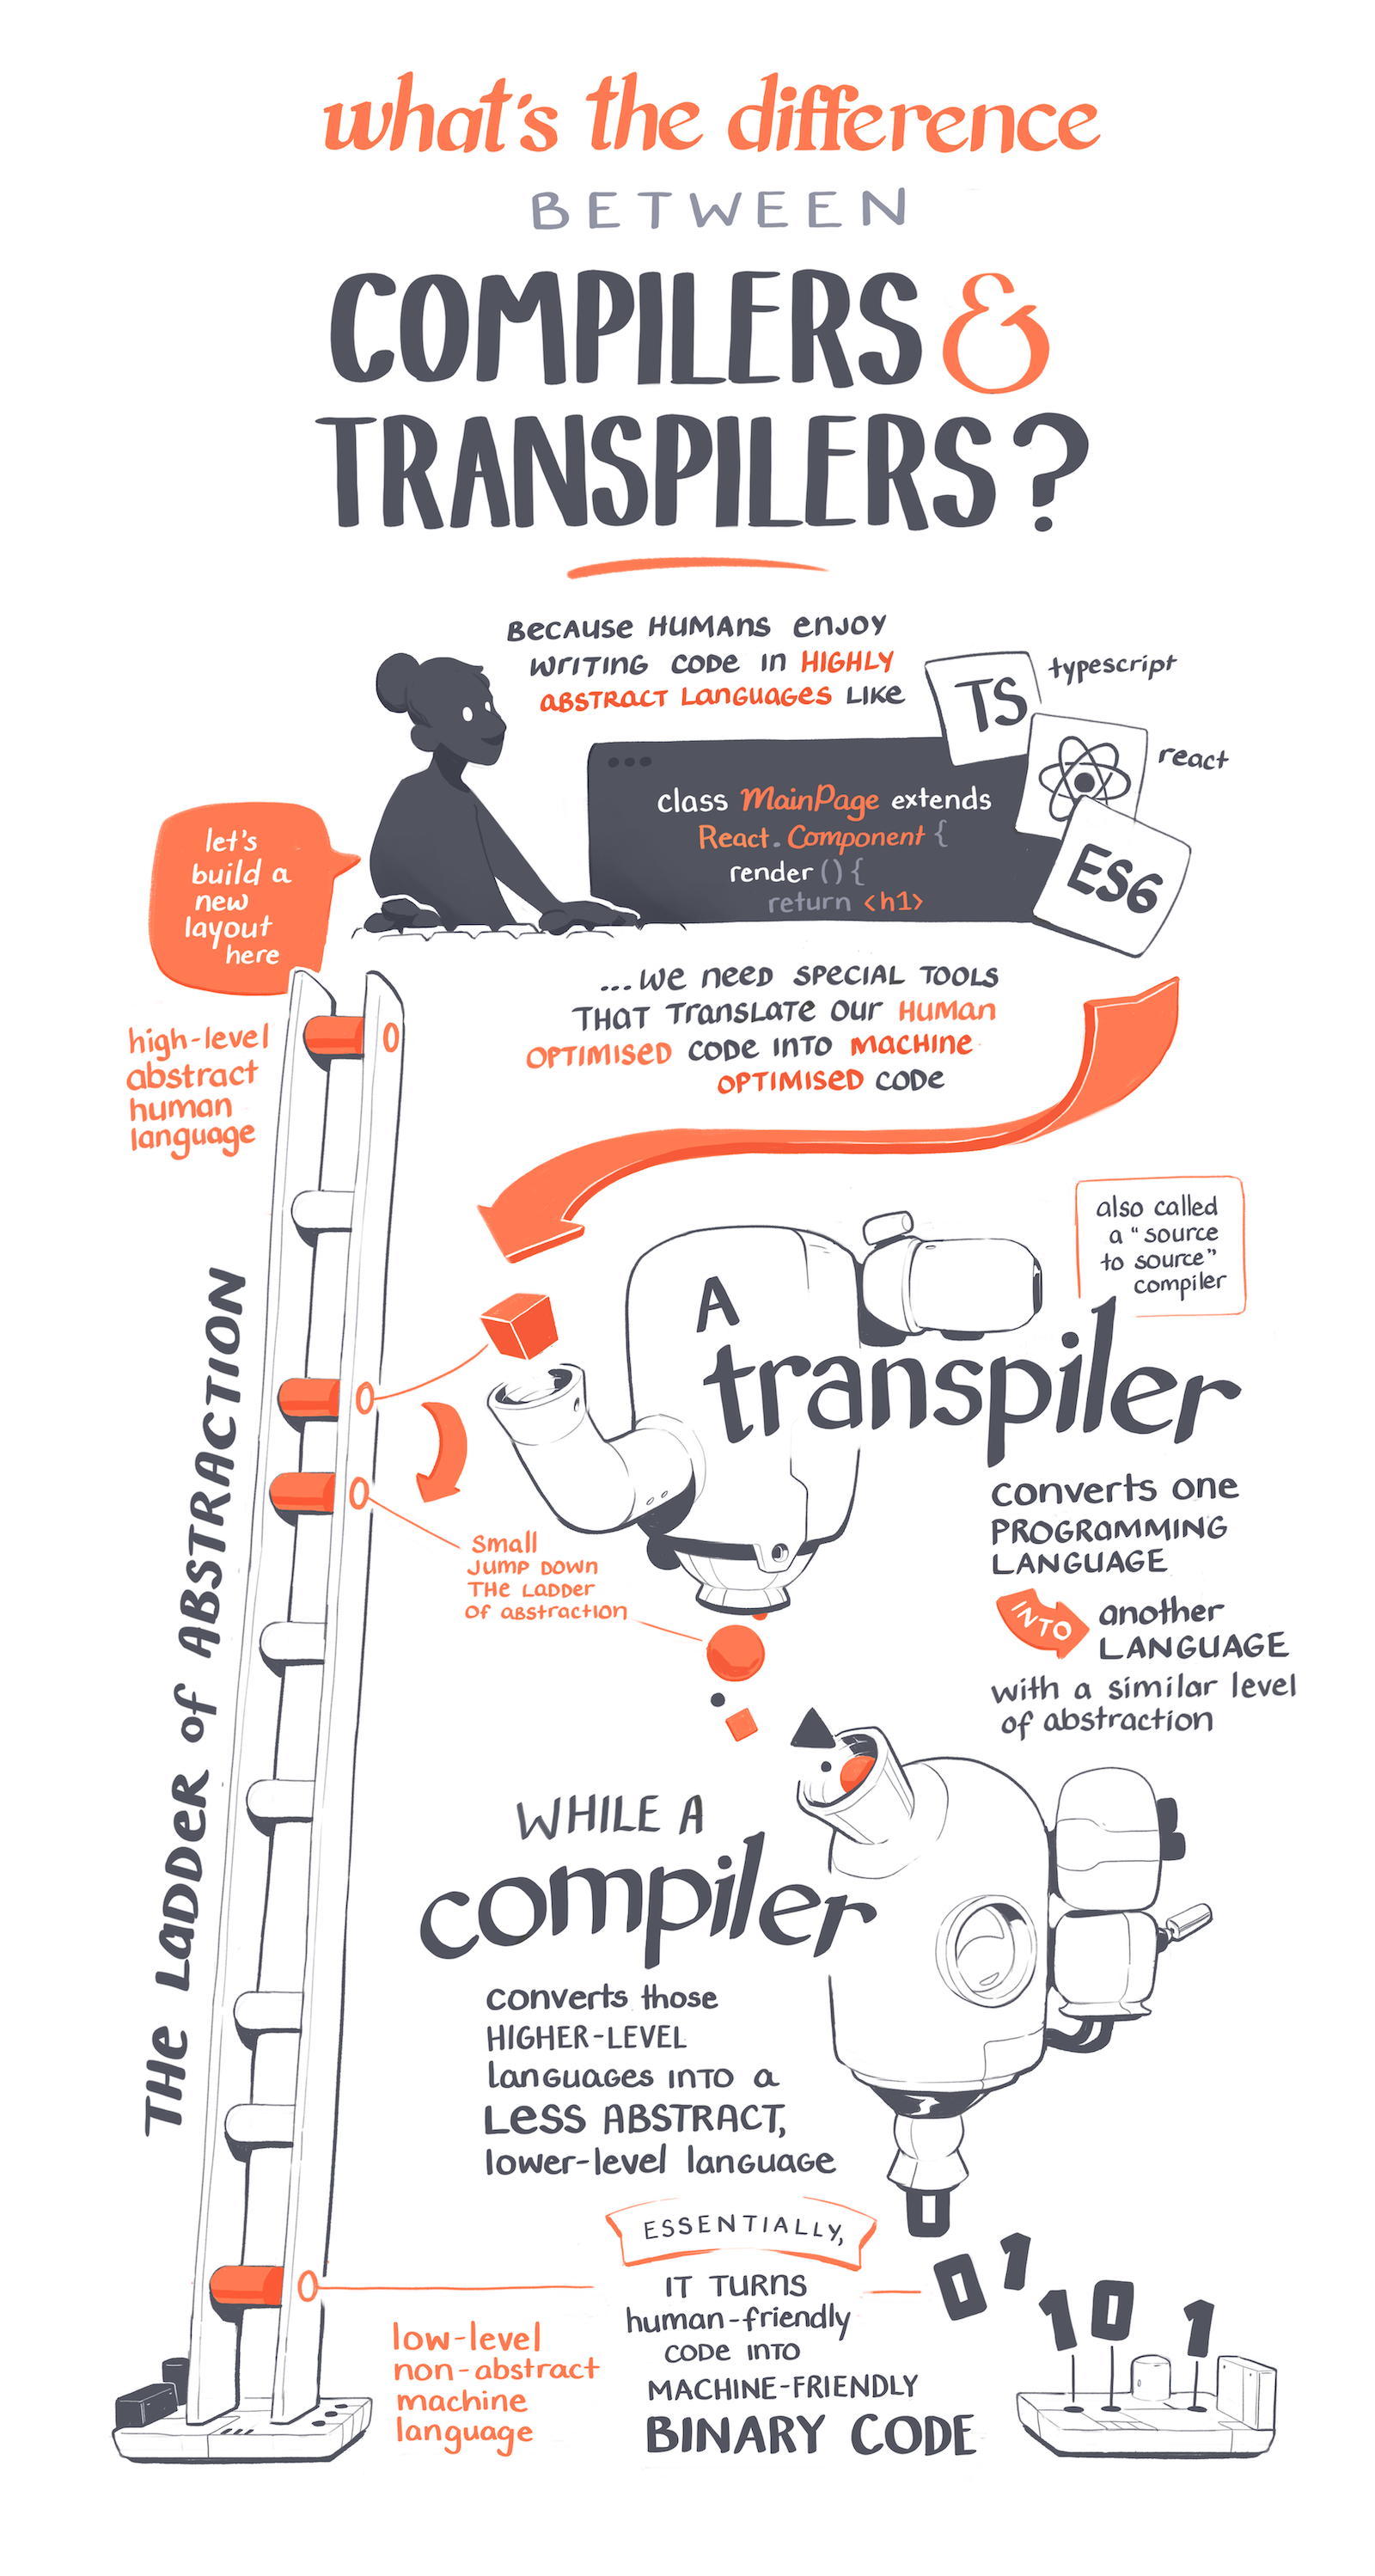 what's the difference
BETWEEN
COMPILERS &
TRANSPILERS?
BECAUSE HUMANS ENJOY
WRITING CODE IN HIGHLY
ABSTRACT LANGUAGES LIKE
TS
typescript
react
ES6
class MainPage extends
React.Component {
render () {
return <h1>
let's
build a
new
layout
here
...WE NEED SPECIAL TOOLS
THAT TRANSLATE OUR HUMAN
OPTIMISED CODE INTO MACHINE
OPTIMISED CODE
high-level
abstract
human
language
THE LADDER of ABSTRACTION
also called
a "source
to source"
compiler
A
transpiler
converts one
PROGRAMMING
LANGUAGE
INTO
another
LANGUAGE
with a similar level
of abstraction
Small
JUMP DOWN
THE LADDER
OF ABSTRACTION
WHILE A
compiler
converts those
HIGHER-LEVEL
languages INTO a
Less ABSTRACT,
lower-level language
ESSENTIALLY,
IT TURNS
human-friendly
CODE INTO
MACHINE-FRIENDLY
BINARY CODE
low-level
non-abstract
machine
language
0
0 1
1 0 1